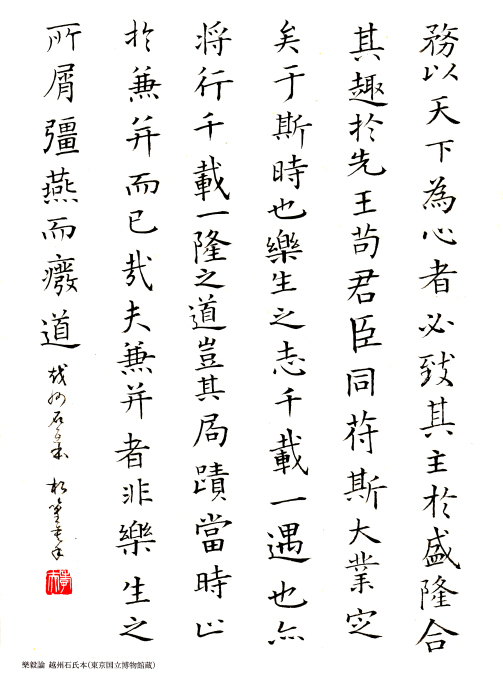 務以天下為心者必致其主於盛隆合
其趣於先王苟君臣同苻斯大業定
矣于斯時也樂生之志千載一遇也亦
将行千載一隆之道豈其局蹟當時止
於兼并而已哉夫兼并者非樂生之
所屑彊燕而癈道
越州石氏本
樂毅論 越州石氏本(東京国立博物館蔵)